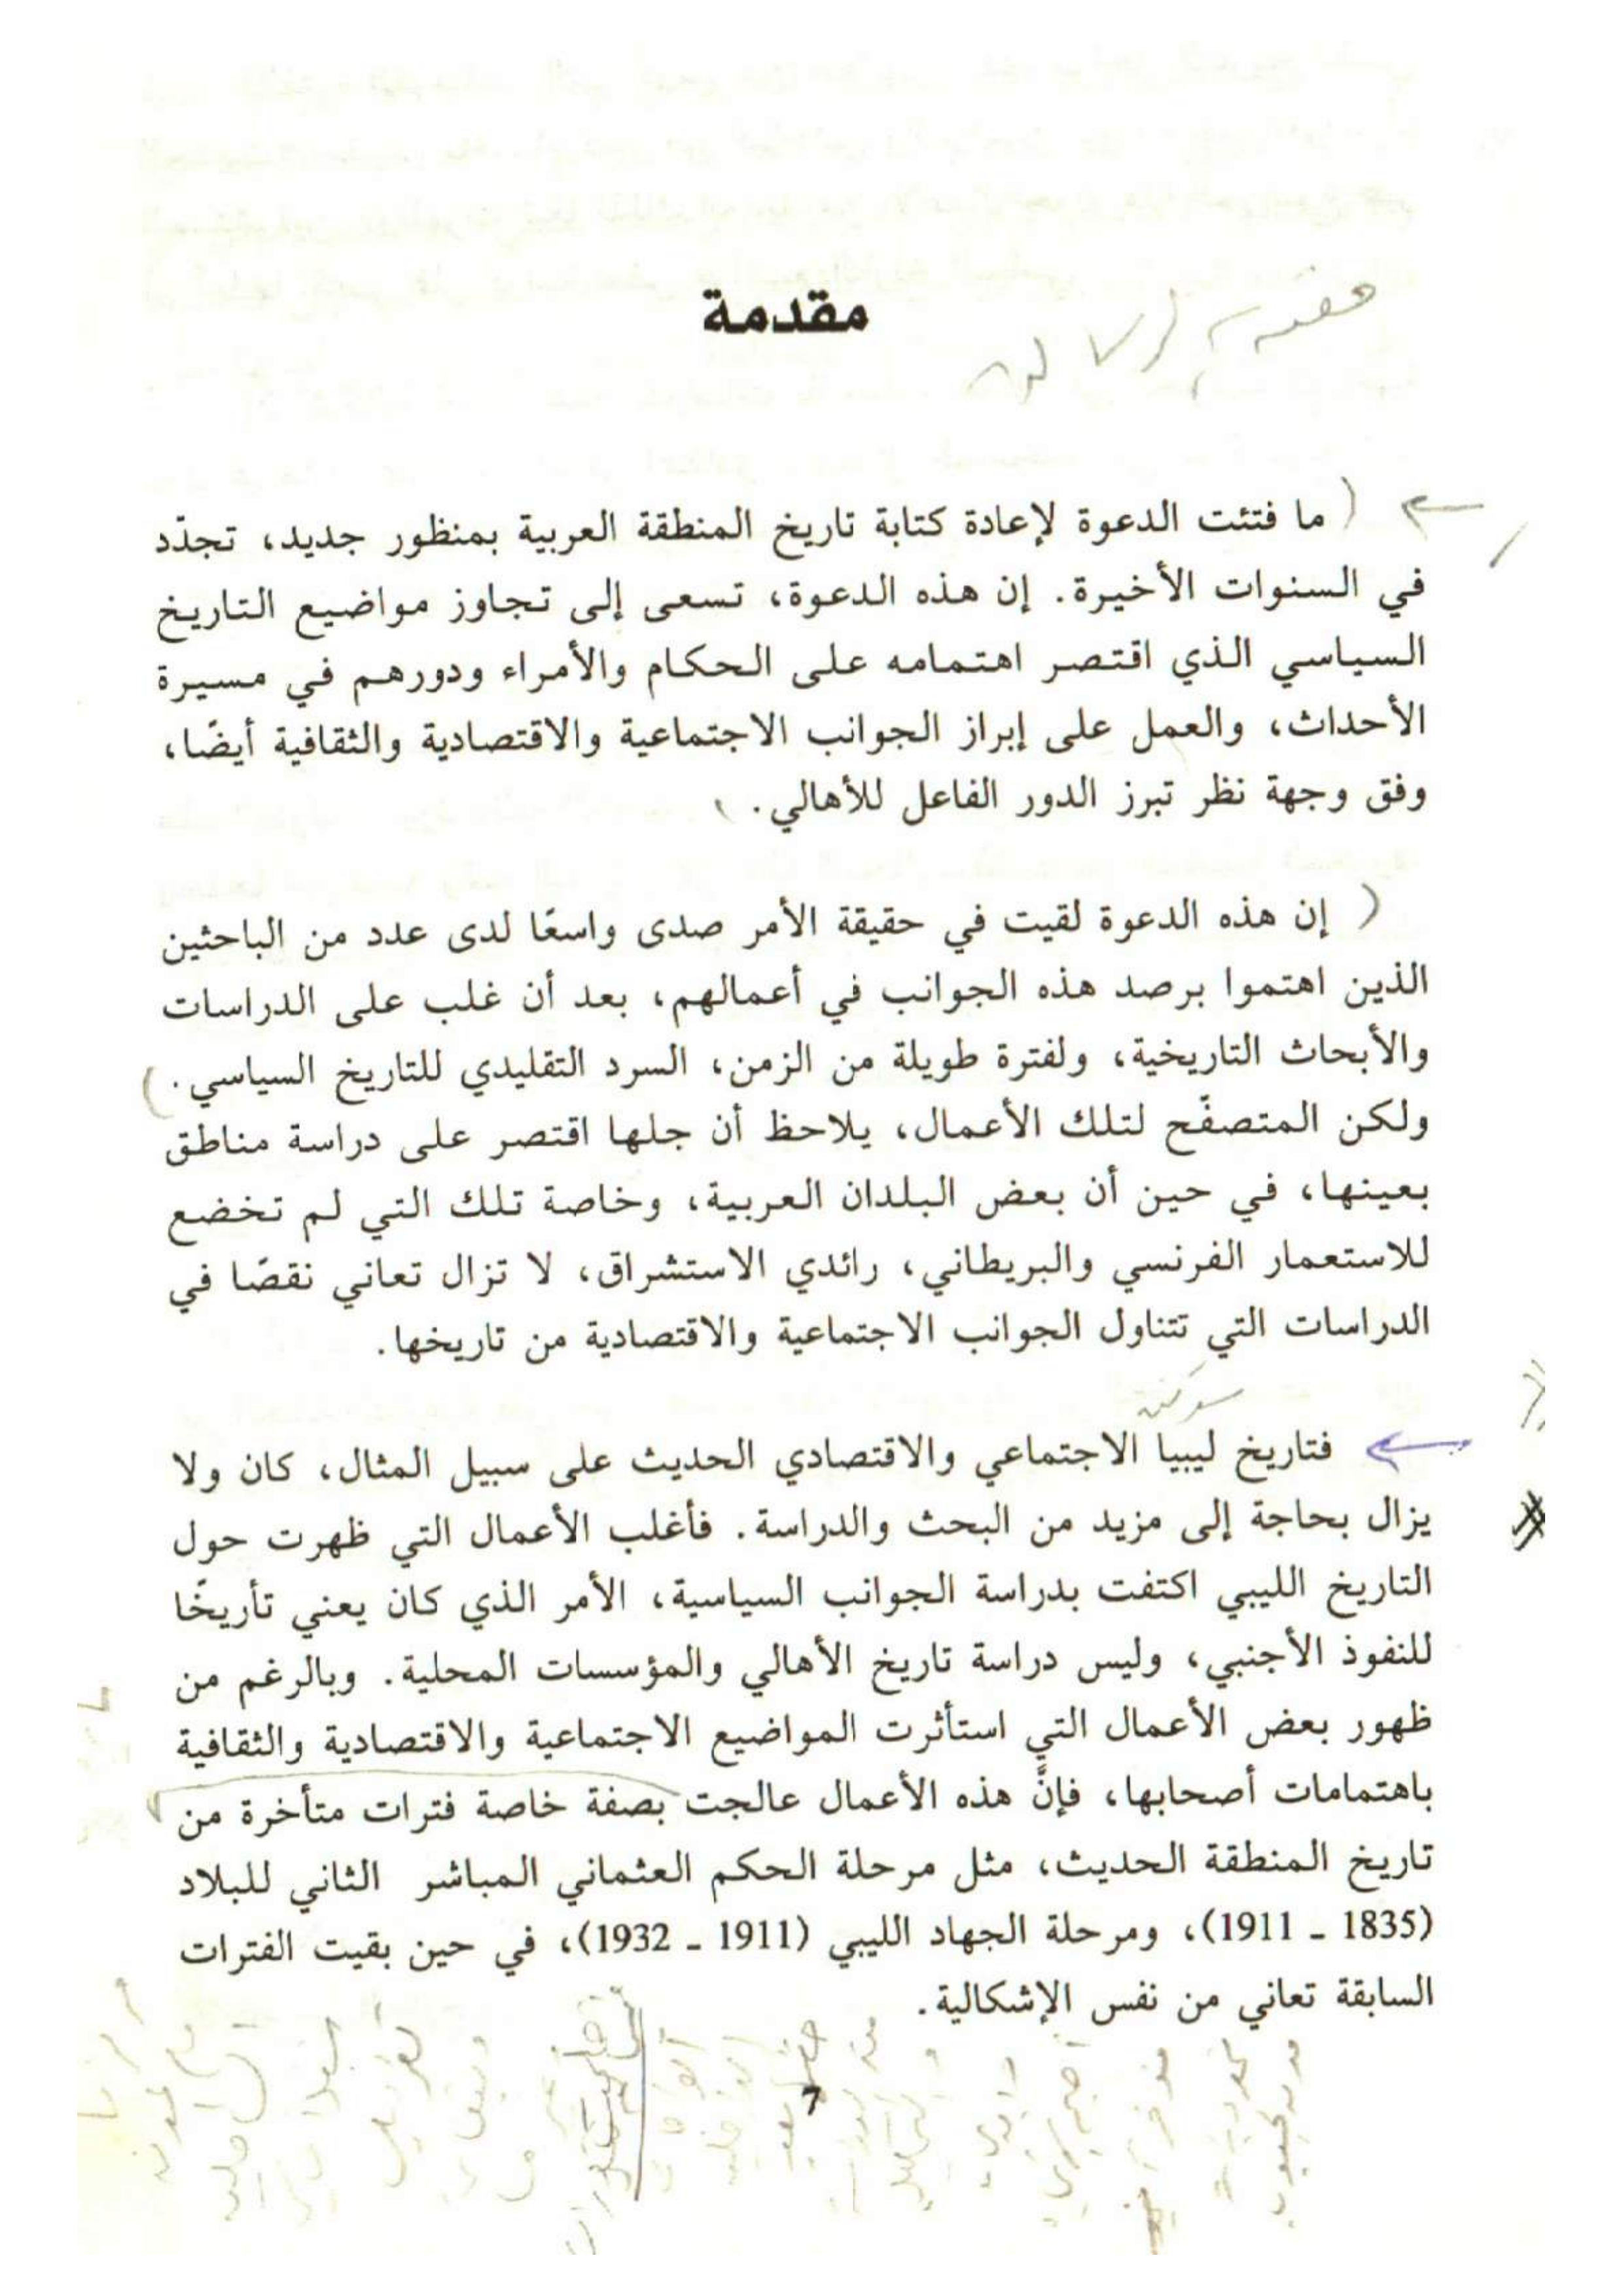 مقدمة
ما فتئت الدعوة لإعادة كتابة تاريخ المنطقة العربية بمنظور جديد، تجدّد
في السنوات الأخيرة. إن هذه الدعوة، تسعى إلى تجاوز مواضيع التاريخ
السياسي الذي اقتصر اهتمامه على الحكام والأمراء ودورهم في مسيرة
الأحداث، والعمل على إبراز الجوانب الاجتماعية والاقتصادية والثقافية أيضًا،
وفق وجهة نظر تبرز الدور الفاعل للأهالي.
إن هذه الدعوة لقيت في حقيقة الأمر صدى واسعًا لدى عدد من الباحثين
الذين اهتموا برصد هذه الجوانب في أعمالهم، بعد أن غلب على الدراسات
والأبحاث التاريخية، ولفترة طويلة من الزمن، السرد التقليدي للتاريخ السياسي.
ولكن المتصفّح لتلك الأعمال، يلاحظ أن جلها اقتصر على دراسة مناطق
بعينها، في حين أن بعض البلدان العربية، وخاصة تلك التي لم تخضع
للاستعمار الفرنسي والبريطاني، رائدي الاستشراق، لا تزال تعاني نقصًا في
الدراسات التي تتناول الجوانب الاجتماعية والاقتصادية من تاريخها.
فتاريخ ليبيا الاجتماعي والاقتصادي الحديث على سبيل المثال، كان ولا
يزال بحاجة إلى مزيد من البحث والدراسة. فأغلب الأعمال التي ظهرت حول
التاريخ الليبي اكتفت بدراسة الجوانب السياسية، الأمر الذي كان يعني تأريخًا
للنفوذ الأجنبي، وليس دراسة تاريخ الأهالي والمؤسسات المحلية. وبالرغم من
ظهور بعض الأعمال التي استأثرت المواضيع الاجتماعية والاقتصادية والثقافية
باهتمامات أصحابها، فإنَّ هذه الأعمال عالجت بصفة خاصة فترات متأخرة من
تاريخ المنطقة الحديث، مثل مرحلة الحكم العثماني المباشر الثاني للبلاد
(1835 ـ 1911)، ومرحلة الجهاد الليبي (1911 ـ 1932)، في حين بقيت الفترات
السابقة تعاني من نفس الإشكالية.
7